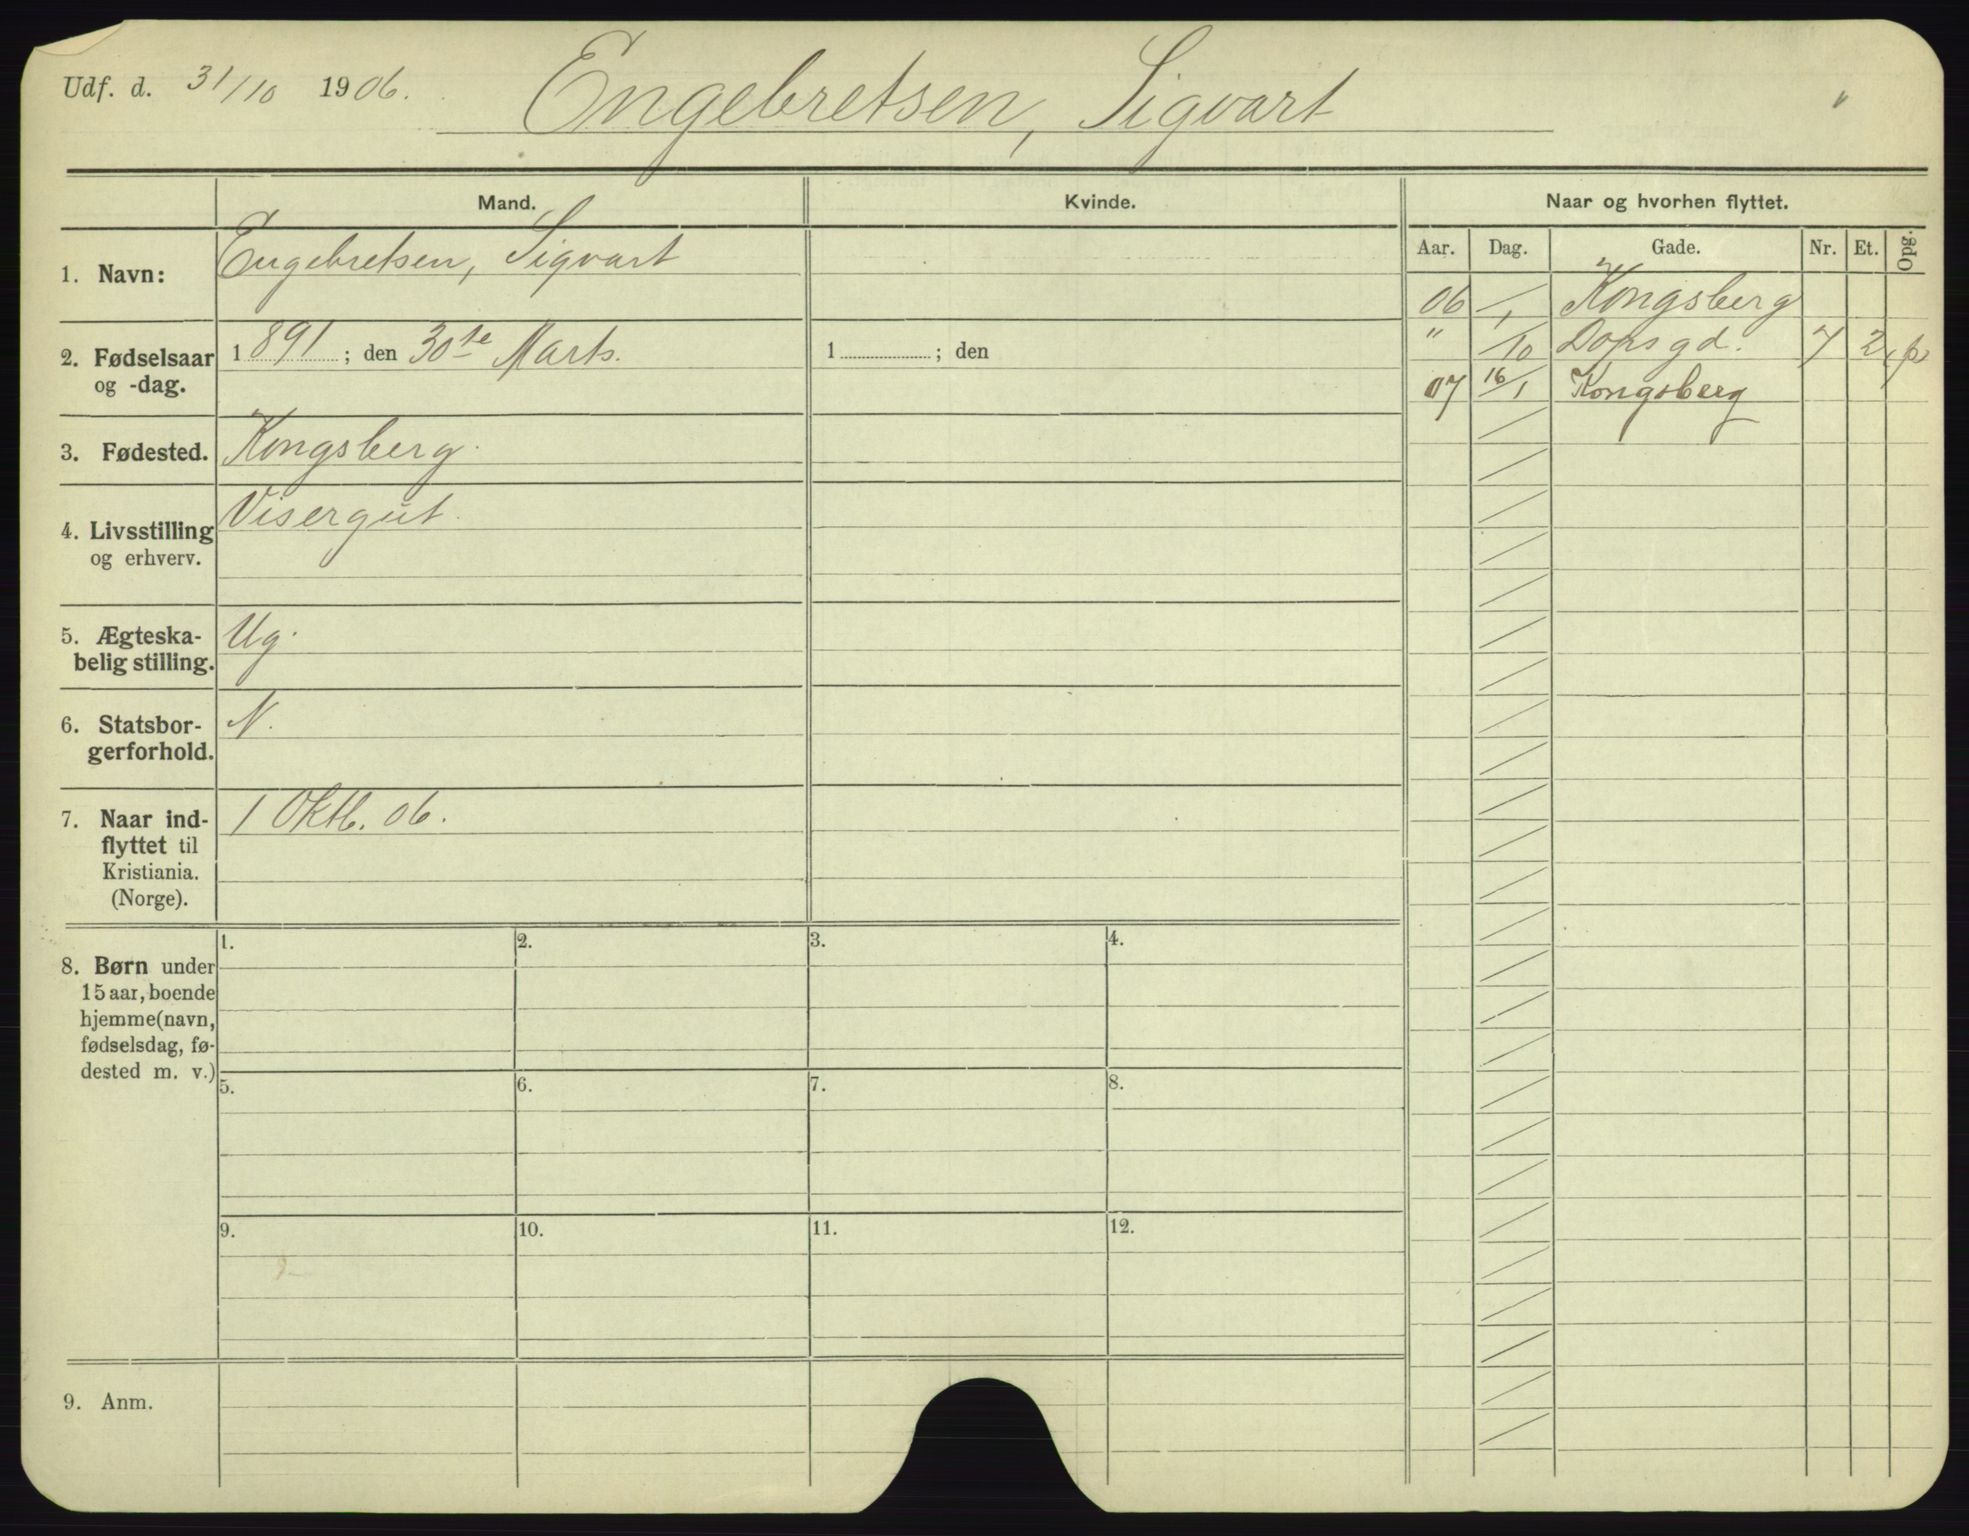 Udf. d. 31/10 1906. Engebretsen, Sigvart
Mand. Kvinde. Naar og hvorhen flyttet.
Aar. Dag. Gade. Nr. Et. Opg.
1. Navn: Engebretsen, Sigvart
06 / Kongsberg
2. Fødselsaar og -dag. 1891; den 30te Marts. 1 ; den
" /10 Dopsgd. 7 2
07 16/1 Kongsberg
3. Fødested. Kongsberg.
4. Livsstilling Visergut.
og erhverv.
5. Ægteska- Ug.
belig stilling.
6. Statsbor- N.
gerforhold.
7. Naar ind- 1 Oktb. 06.
flyttet til
Kristiania.
(Norge).
1. 2. 3. 4.
8. Børn under
15 aar, boende
hjemme (navn,
fødselsdag, fø-
dested m. v.)
5. 6. 7. 8.
9. 10. 11. 12.
9. Anm.